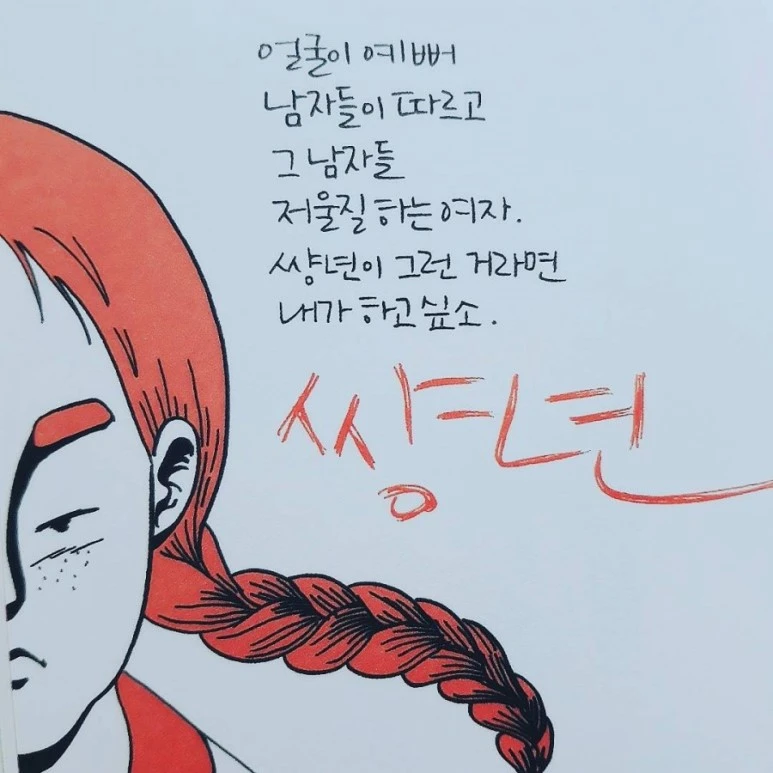 얼굴이 예뻐
남자들이 따르고
그 남자들
저울질 하는 여자.
쌍년이 그런 거라면
내가 하고 싶소.
쌍년